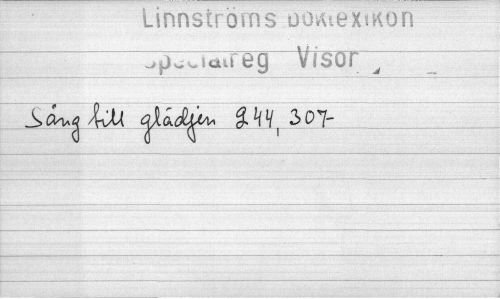 Linnströms boklexikon
Specialreg Visor
Sång till glädjen 244, 307-